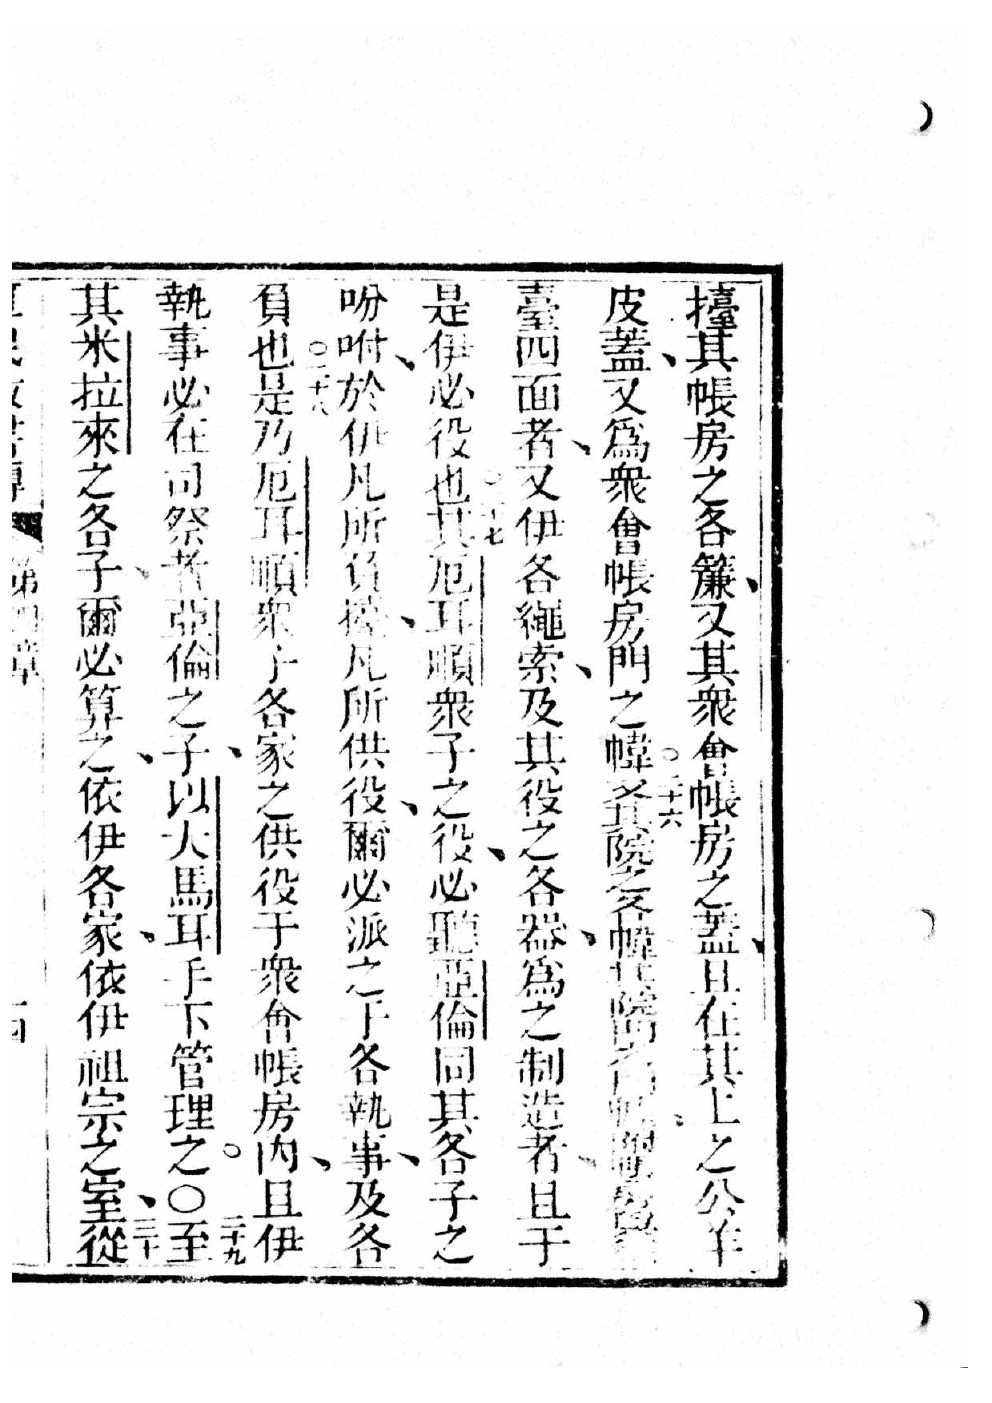 擡其帳房之各簾又其衆會帳房之蓋且在其上之公羊
皮蓋又爲衆會帳房門之幃二十六各院之幃其院門之
臺四面者又伊各繩索及其役之各器爲之制造者且于
是伊必役也二十七其厄耳順衆子之役必聽亞倫同其各子之
吩咐於伊凡所負擡凡所供役爾必派之于各執事及各
負也二十八是乃厄耳順衆子各家之供役于衆會帳房内且伊
執事必在司祭者亞倫之子以大馬耳手下管理之○二十九至
其米拉來之各子爾必算之依伊各家依伊祖宗之室三十從
第四章